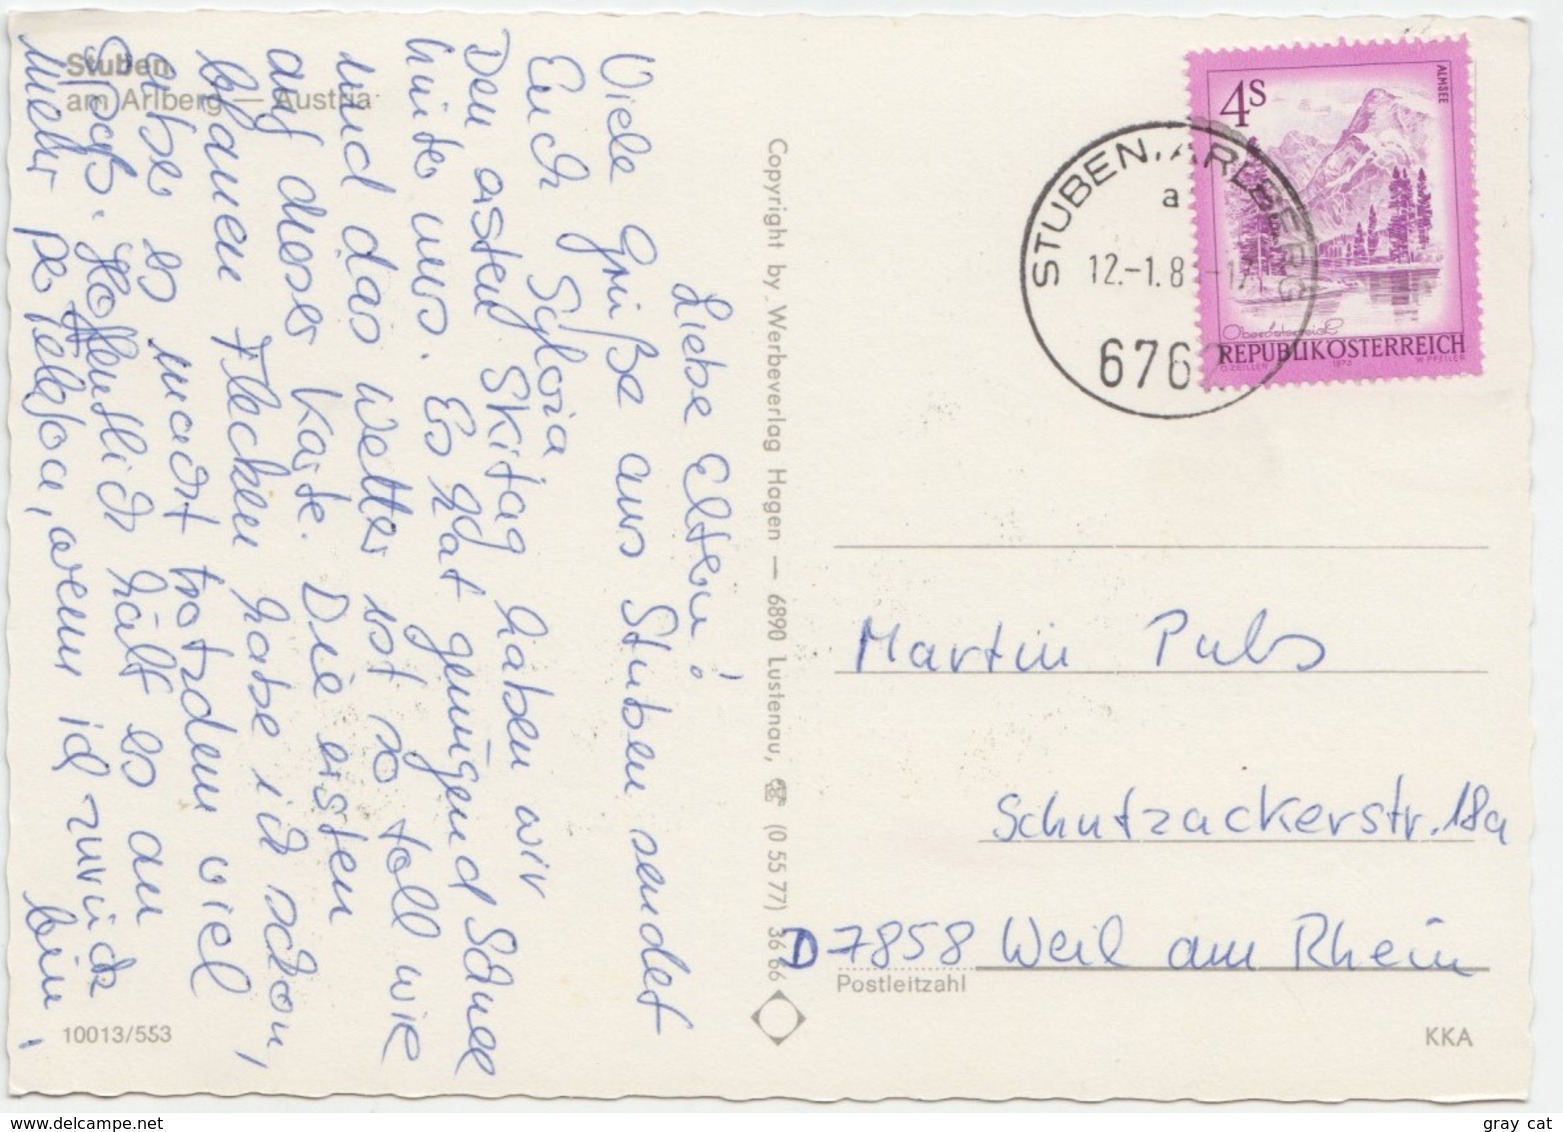 Stuben
am Arlberg — Austria
Liebe Eltern!
Viele Grüße aus Stuben sendet
Euch Sylvia
Den ersten Skitag haben wir
hinter uns. Es hat genügend Schnee
und das Wetter ist so toll wie
auf dieser Karte. Die ersten
blauen Flecken habe ich schon,
aber es macht trotzdem viel
Spaß. Hoffentlich hält es an
Mehr per Telefon, wenn ich zurück
bin.
Copyright by Werbeverlag Hagen — 6890 Lustenau, ☎ (0 55 77) 36 66
10013/553
4S
ALMSEE
Oberösterreich
REPUBLIK ÖSTERREICH
O. ZEILLER 1973 W. PFEILER
STUBEN, ARLBERG
a
12.-1.8 -17
676
Martin Pubs
Schutzackerstr. 18a
D 7858 Weil am Rhein
Postleitzahl
KKA
www.delcampe.net
gray cat